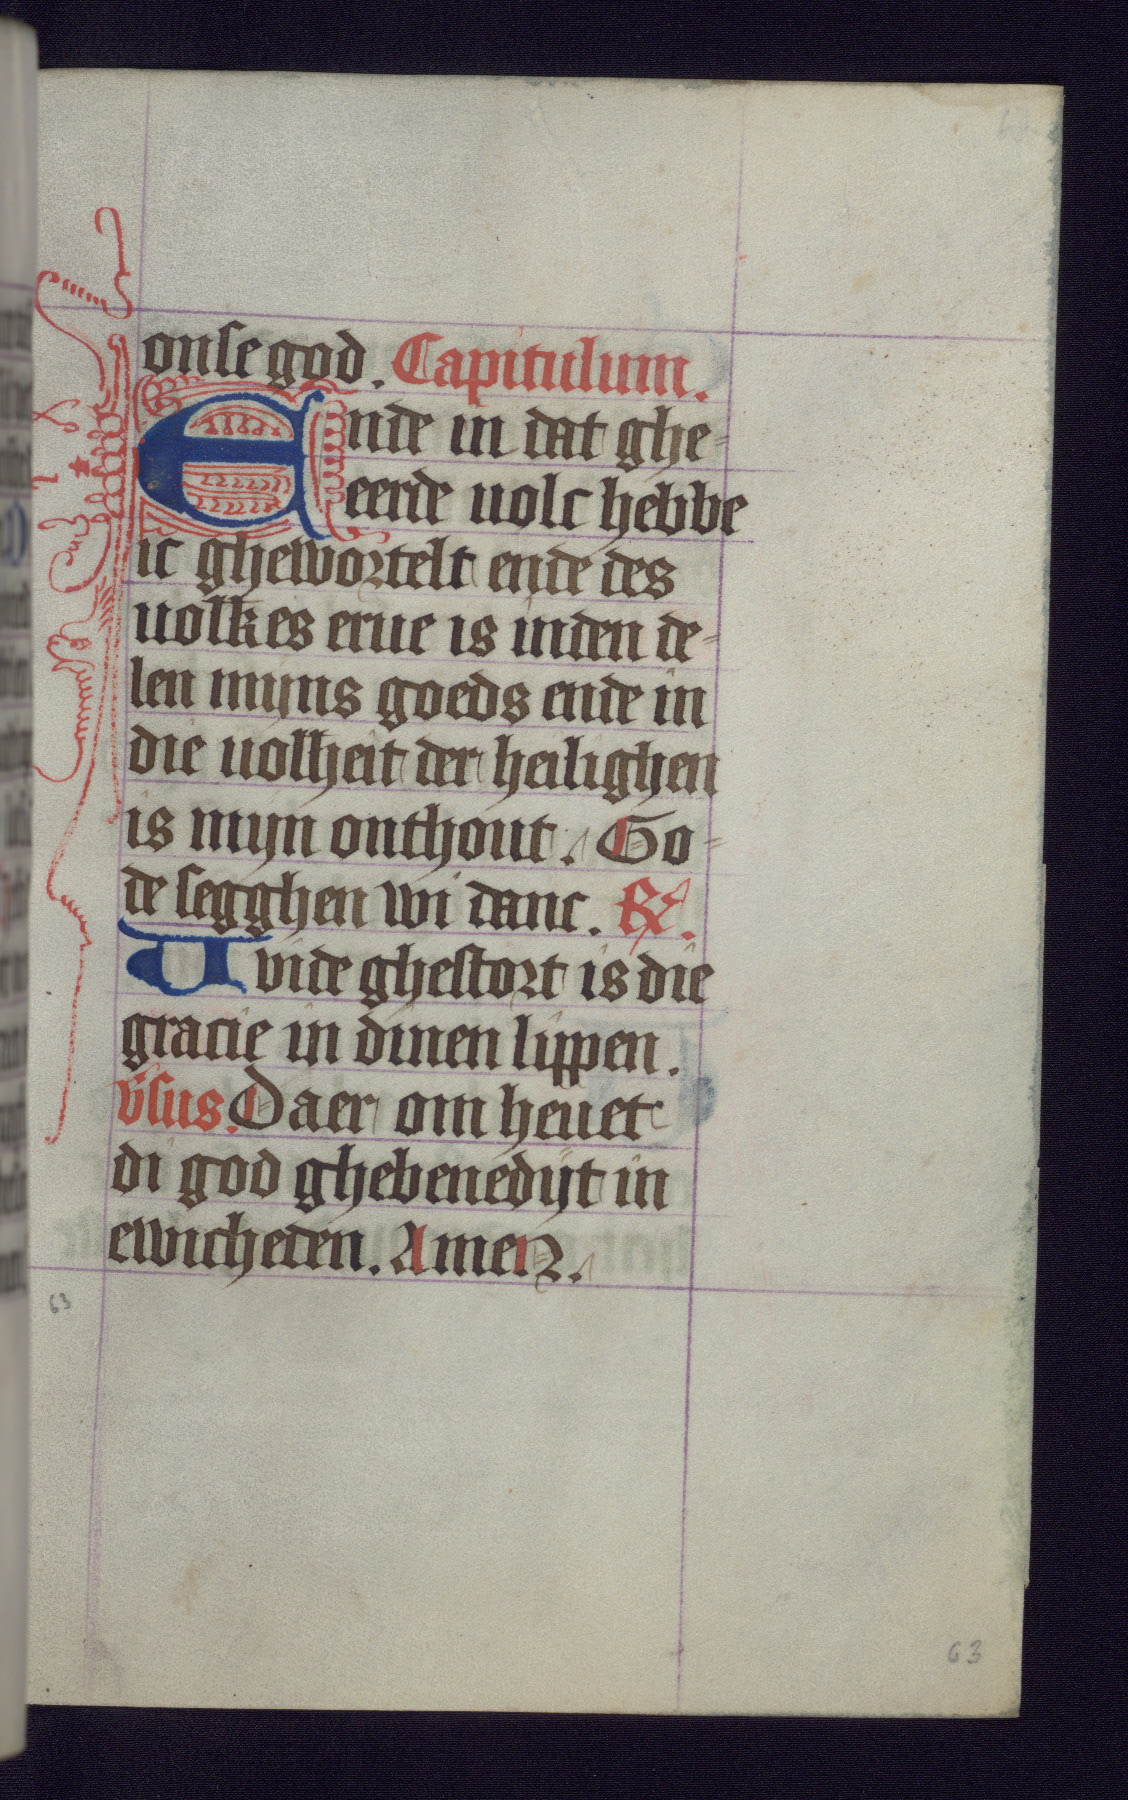 onse god. Capitulum.
Ende in dat ghe-
eerde uolc hebbe
ic ghewortelt ende des
uolkes erue is inden de-
len mijns goeds ende in
die uolheit der heilighen
is mijn onthout. Go-
de segghen wi danc. R̷.
Uvide ghestort is die
gracie in dinen lippen.
v̄sus. Daer om heuet
di god ghebenedijt in
ewicheden. Amen.
63
63